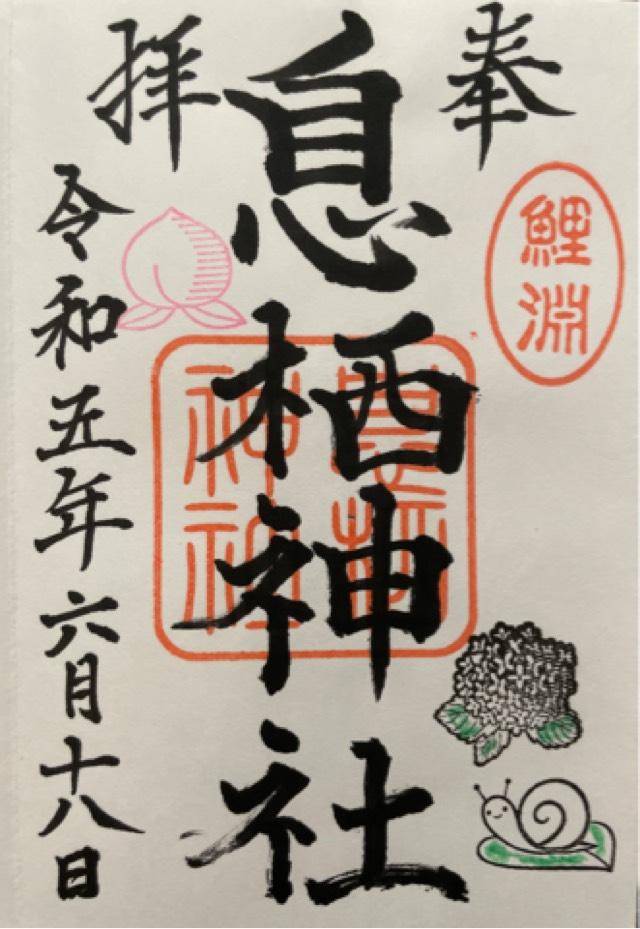 奉拝
鯉淵
息栖神社
息栖神社
令和五年六月十八日